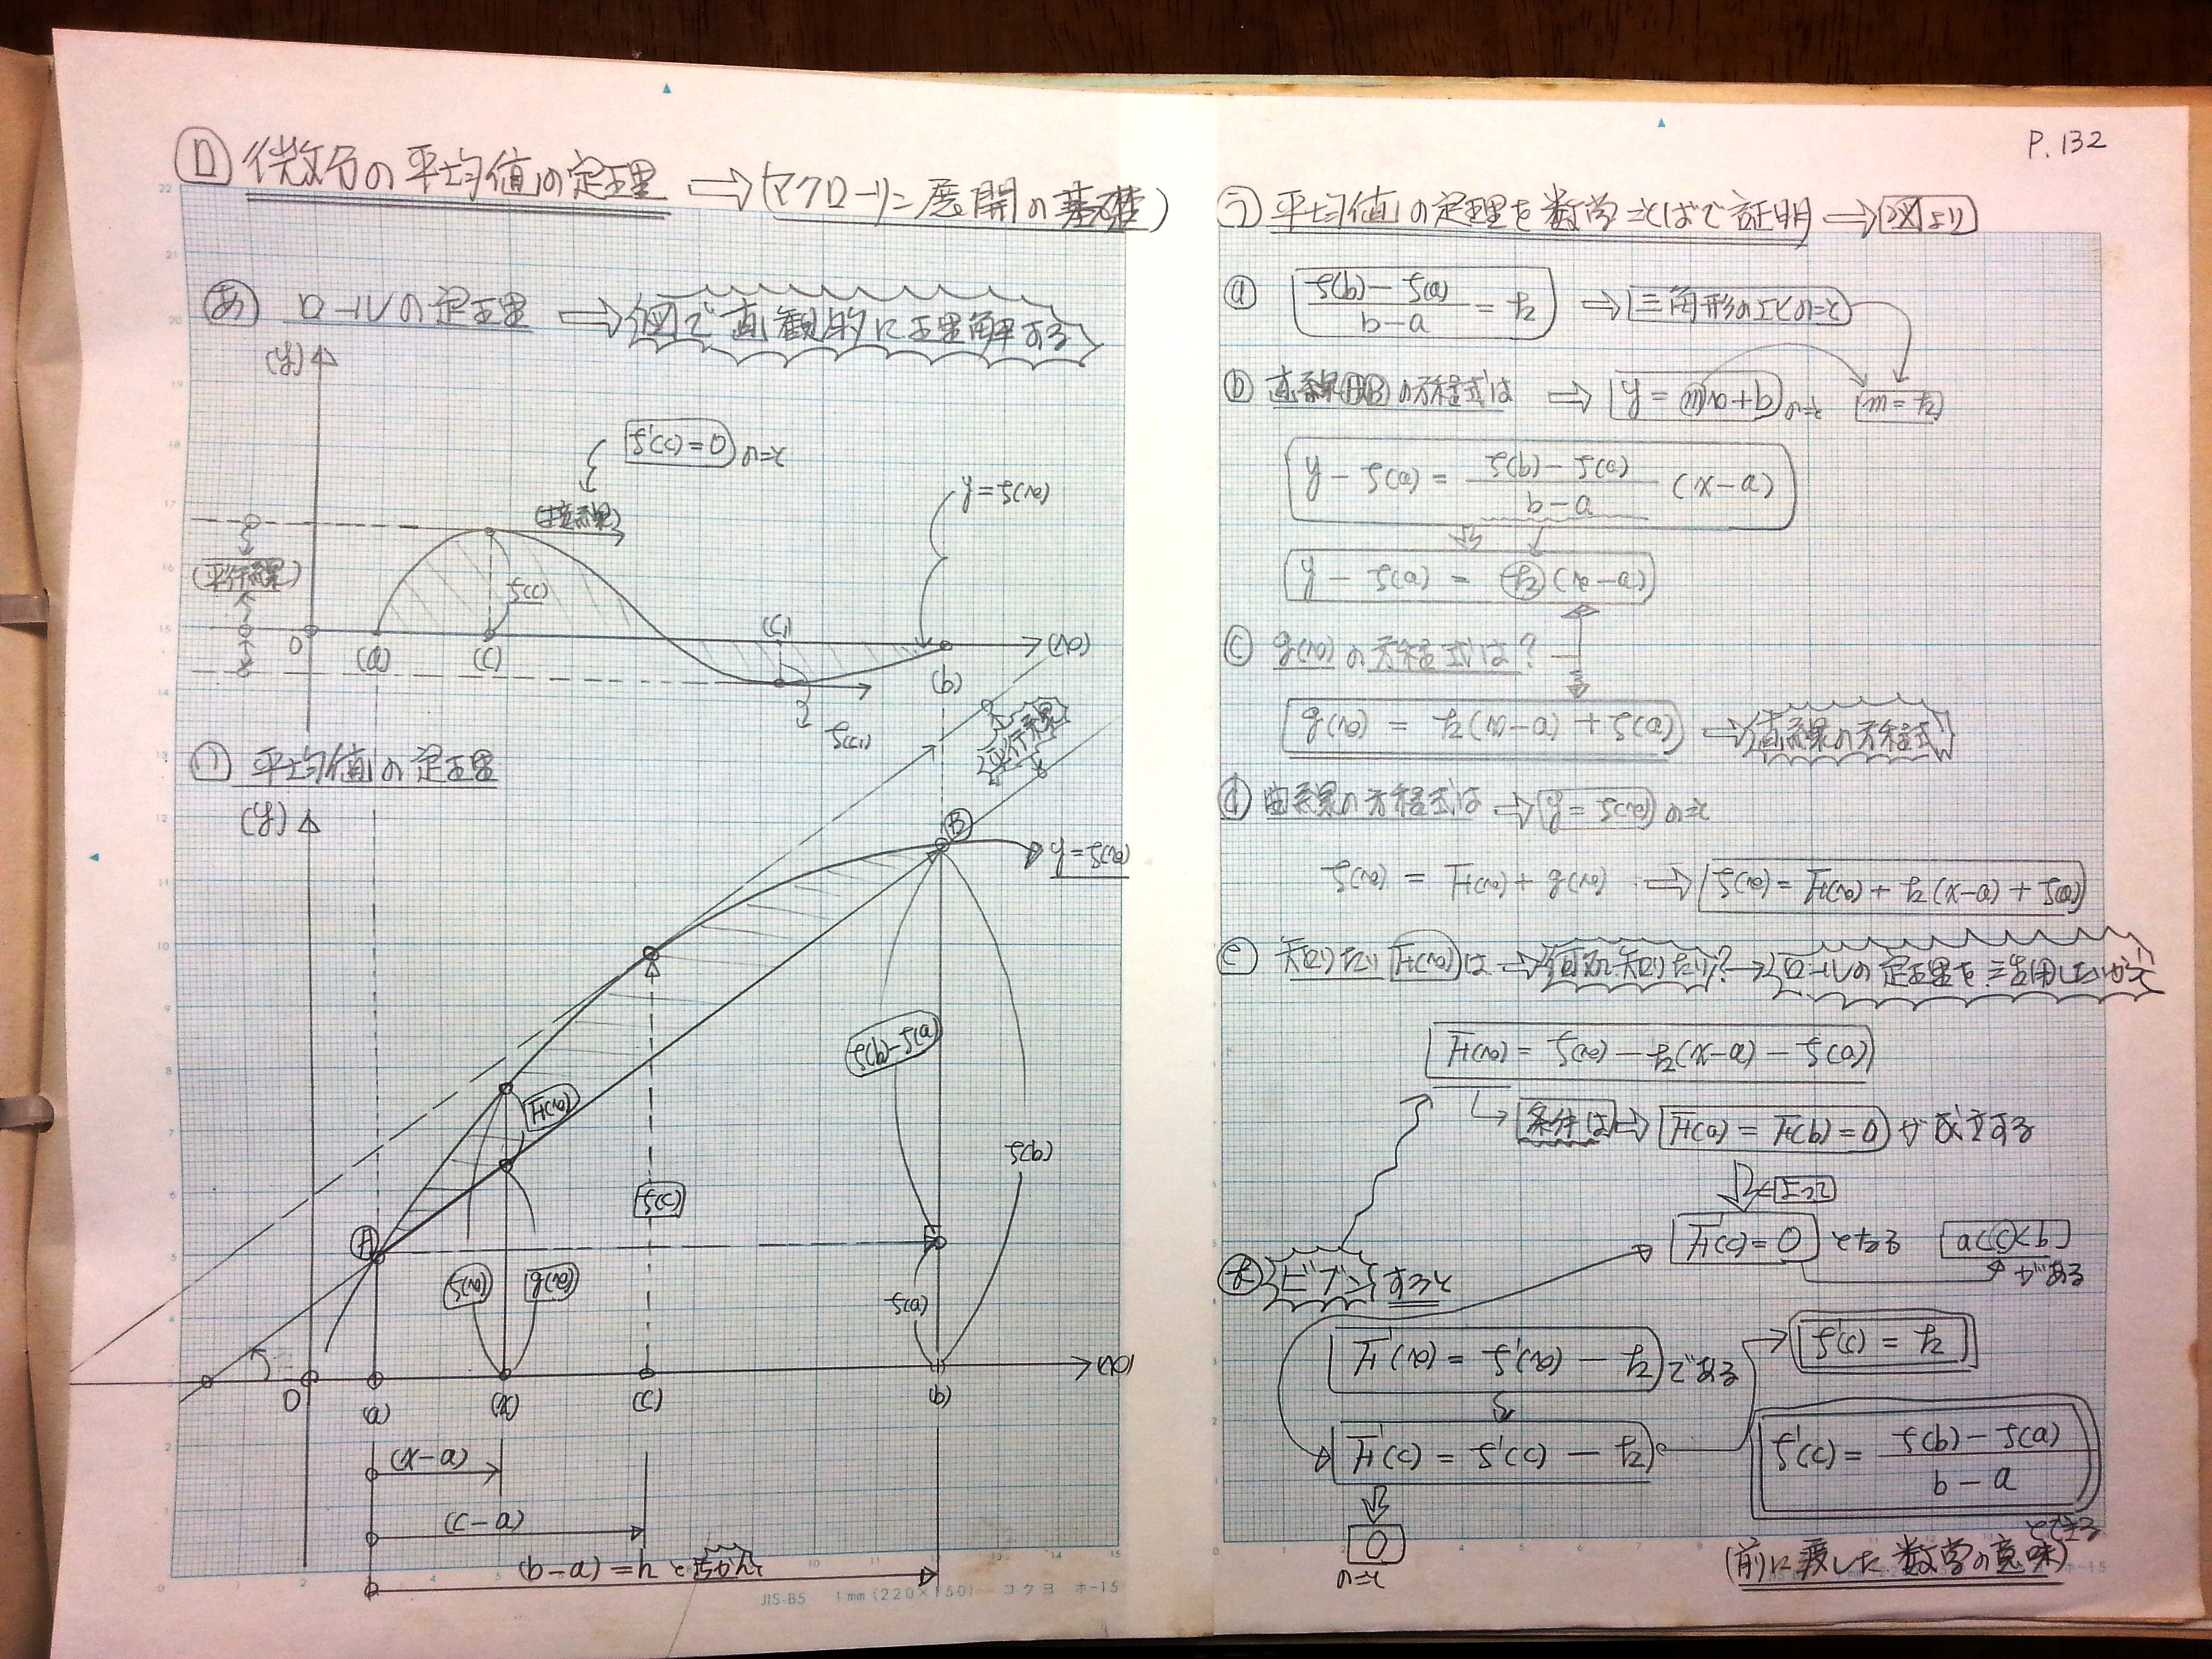 P. 132
ロ 微分の平均値の定理 ⇒ (マクローリン展開の基礎)
あ ロールの定理 ⇒ 図で直観的に理解する
(y)
f'(c)=0 のこと
(接線)
y=f(x)
(平行線)
f(c)
0 (a) (c) (c₁) (b) (x)
f(c₁)
い 平均値の定理
(y)
平行線
B
y=f(x)
F(x)
f(b)-f(a)
f(c)
f(b)
A
f(x) g(x)
f(a)
0 (a) (x) (c) (b) (x)
(x-a)
(c-a)
(b-a)=h
JIS-B5 1mm(220×150) コクヨ ホ-15
う 平均値の定理を数学ことばで証明 ⇒ 図より
ⓐ f(b)-f(a) / b-a = k ⇒ 三角形のエ
ⓑ 直線(AB)の方程式は ⇒ y=mx+b のこと (m=k)
y-f(a) = f(b)-f(a) / b-a (x-a)
y-f(a) = k(x-a)
ⓒ g(x)の方程式は?
g(x) = k(x-a)+f(a) ⇒ 直線の方程式
ⓓ 曲線の方程式は ⇒ y=f(x) のこと
f(x) = F(x)+g(x) ⇒ f(x)=F(x)+k(x-a)+f(a)
ⓔ 知りたいF(x)は ⇒ 何故知りたい? → ロールの定理を活用したいから
F(x)=f(x)-k(x-a)-f(a)
条件は ⇒ F(a)=F(b)=0 が成立する
よって
F'(c)=0 となる a<c<b がある
ビブンすると
F'(x)=f'(x)-k である
f'(c)=k
F'(c)=f'(c)-k
f'(c)= f(b)-f(a) / b-a
とできる
0
のこと
(前に渡した数学の意味)